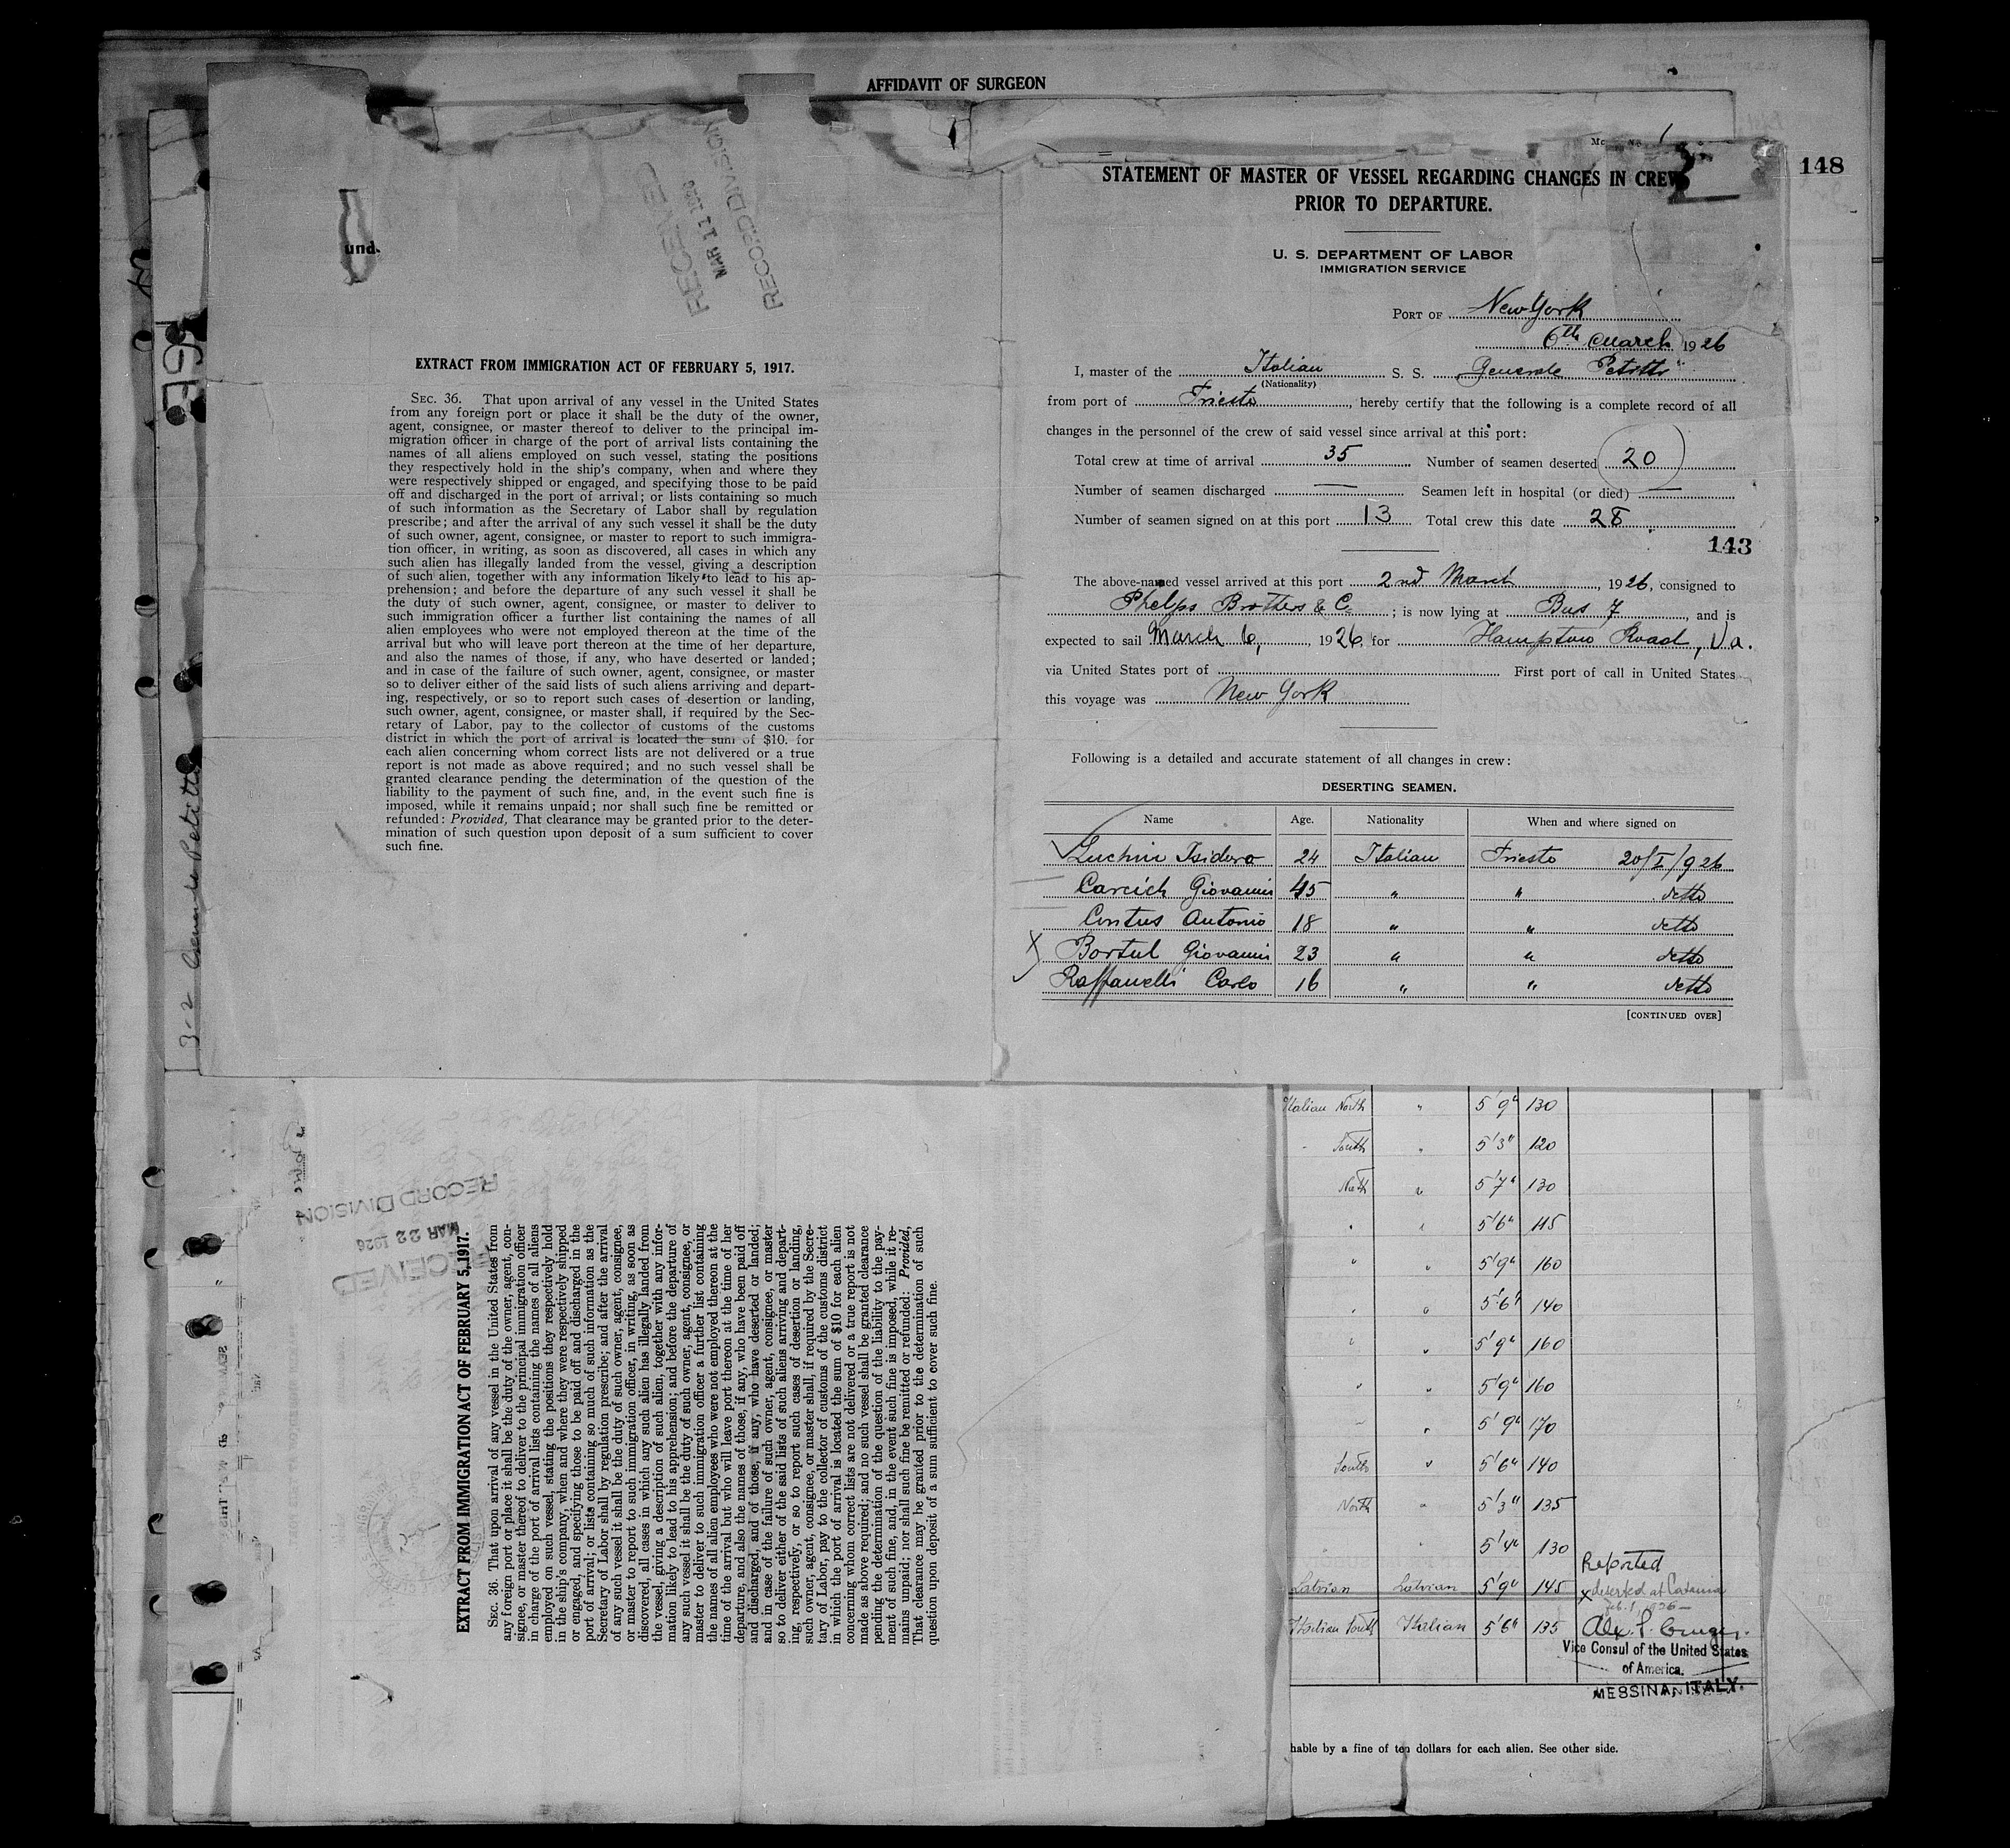 AFFIDAVIT OF SURGEON
148
und.
RECEIVED
MAR 11 1926
RECORD DIVISION
EXTRACT FROM IMMIGRATION ACT OF FEBRUARY 5, 1917.
SEC. 36. That upon arrival of any vessel in the United States
from any foreign port or place it shall be the duty of the owner,
agent, consignee, or master thereof to deliver to the principal im-
migration officer in charge of the port of arrival lists containing the
names of all aliens employed on such vessel, stating the positions
they respectively hold in the ship's company, when and where they
were respectively shipped or engaged, and specifying those to be paid
off and discharged in the port of arrival; or lists containing so much
of such information as the Secretary of Labor shall by regulation
prescribe; and after the arrival of any such vessel it shall be the duty
of such owner, agent, consignee, or master to report to such immigra-
tion officer, in writing, as soon as discovered, all cases in which any
such alien has illegally landed from the vessel, giving a description
of such alien, together with any information likely to lead to his ap-
prehension; and before the departure of any such vessel it shall be
the duty of such owner, agent, consignee, or master to deliver to
such immigration officer a further list containing the names of all
alien employees who were not employed thereon at the time of the
arrival but who will leave port thereon at the time of her departure,
and also the names of those, if any, who have deserted or landed;
and in case of the failure of such owner, agent, consignee, or master
so to deliver either of the said lists of such aliens arriving and depart-
ing, respectively, or so to report such cases of desertion or landing,
such owner, agent, consignee, or master shall, if required by the Sec-
retary of Labor, pay to the collector of customs of the customs
district in which the port of arrival is located the sum of $10. for
each alien concerning whom correct lists are not delivered or a true
report is not made as above required; and no such vessel shall be
granted clearance pending the determination of the question of the
liability to the payment of such fine, and, in the event such fine is
imposed, while it remains unpaid; nor shall such fine be remitted or
refunded: Provided, That clearance may be granted prior to the deter-
mination of such question upon deposit of a sum sufficient to cover
such fine.
STATEMENT OF MASTER OF VESSEL REGARDING CHANGES IN CREW
PRIOR TO DEPARTURE.
U. S. DEPARTMENT OF LABOR
IMMIGRATION SERVICE
PORT OF New York
6th March 1926
I, master of the Italian S. S. Generale Petitti"
(Nationality)
from port of Trieste, hereby certify that the following is a complete record of all
changes in the personnel of the crew of said vessel since arrival at this port:
Total crew at time of arrival 35 Number of seamen deserted 20
Number of seamen discharged — Seamen left in hospital (or died) —
Number of seamen signed on at this port 13 Total crew this date 28
143
The above-named vessel arrived at this port 2nd March, 1926, consigned to
Phelps Brothers & C.; is now lying at Bus 7, and is
expected to sail March 6, 1926, for Hampton Road, Va.
via United States port of First port of call in United States
this voyage was New York
Following is a detailed and accurate statement of all changes in crew:
DESERTING SEAMEN.
Name Age. Nationality When and where signed on
Luchin Isidoro 24 Italian Trieste 20/I/926
Carcich Giovanni 45 " " detto
Contus Antonio 18 " " detto
Bortul Giovanni 23 " " detto
Raffanelli Carlo 16 " " detto
[CONTINUED OVER]
3-2 Generale Petitti
RECORD DIVISION
MAR 22 1926
RECEIVED
EXTRACT FROM IMMIGRATION ACT OF FEBRUARY 5, 1917.
SEC. 36. That upon arrival of any vessel in the United States from
any foreign port or place it shall be the duty of the owner, agent, con-
signee, or master thereof to deliver to the principal immigration officer
in charge of the port of arrival lists containing the names of all aliens
employed on such vessel, stating the positions they respectively hold
in the ship's company, when and where they were respectively shipped
or engaged, and specifying those to be paid off and discharged in the
port of arrival; or lists containing so much of such information as the
Secretary of Labor shall by regulation prescribe; and after the arrival
of any such vessel it shall be the duty of such owner, agent, consignee,
or master to report to such immigration officer, in writing, as soon as
discovered, all cases in which any such alien has illegally landed from
the vessel, giving a description of such alien, together with any infor-
mation likely to lead to his apprehension; and before the departure of
any such vessel it shall be the duty of such owner, agent, consignee, or
master to deliver to such immigration officer a further list containing
the names of all alien employees who were not employed thereon at the
time of the arrival but who will leave port thereon at the time of her
departure, and also the names of those, if any, who have been paid off
and discharged, and of those, if any, who have deserted or landed;
and in case of the failure of such owner, agent, consignee, or master
so to deliver either of the said lists of such aliens arriving and depart-
ing, respectively, or so to report such cases of desertion or landing,
such owner, agent, consignee, or master shall, if required by the Secre-
tary of Labor, pay to the collector of customs of the customs district
in which the port of arrival is located the sum of $10 for each alien
concerning whom correct lists are not delivered or a true report is not
made as above required; and no such vessel shall be granted clearance
pending the determination of the question of the liability to the pay-
ment of such fine, and, in the event such fine is imposed, while it re-
mains unpaid; nor shall such fine be remitted or refunded: Provided,
That clearance may be granted prior to the determination of such
question upon deposit of a sum sufficient to cover such fine.
Italian North " 5'9" 130
" South " 5'3" 120
North " 5'7" 130
" " 5'6" 115
" " 5'9" 160
" " 5'6" 140
" " 5'9" 160
" " 5'9" 160
" " 5'9" 170
South " 5'6" 140
North " 5'3" 135
" " 5'4" 130
Reported
Latvian Latvian 5'9" 145 x deserted at Catania
Feb. 1, 1926—
Italian South Italian 5'6" 135
Vice Consul of the United States
of America.
MESSINA, ITALY.
hable by a fine of ten dollars for each alien. See other side.